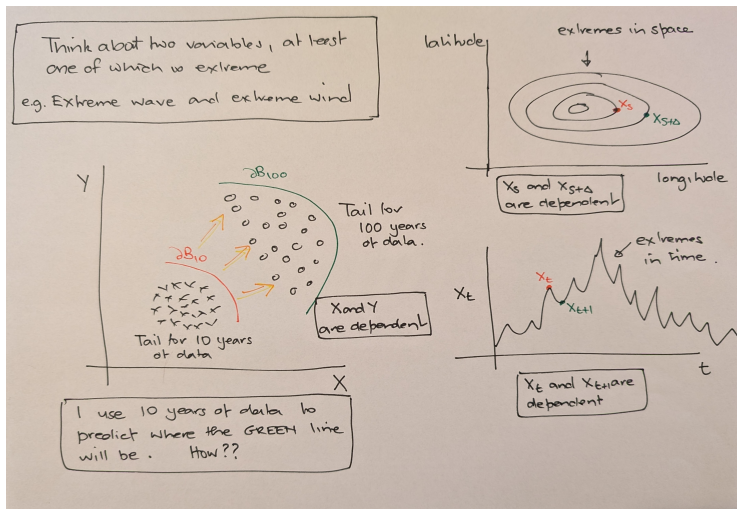 Think about two variables, at least
one of which is extreme
e.g. Extreme wave and extreme wind
Y
∂B100
Tail for
100 years
of data.
∂B10
Tail for 10 years
of data
X and Y
are dependent
X
I use 10 years of data to
predict where the GREEN line
will be. How??
latitude
extremes in space
Xs
Xs+Δ
longitude
Xs and Xs+Δ
are dependent
extremes
in time.
Xt
Xt
Xt+1
t
Xt and Xt+1 are
dependent